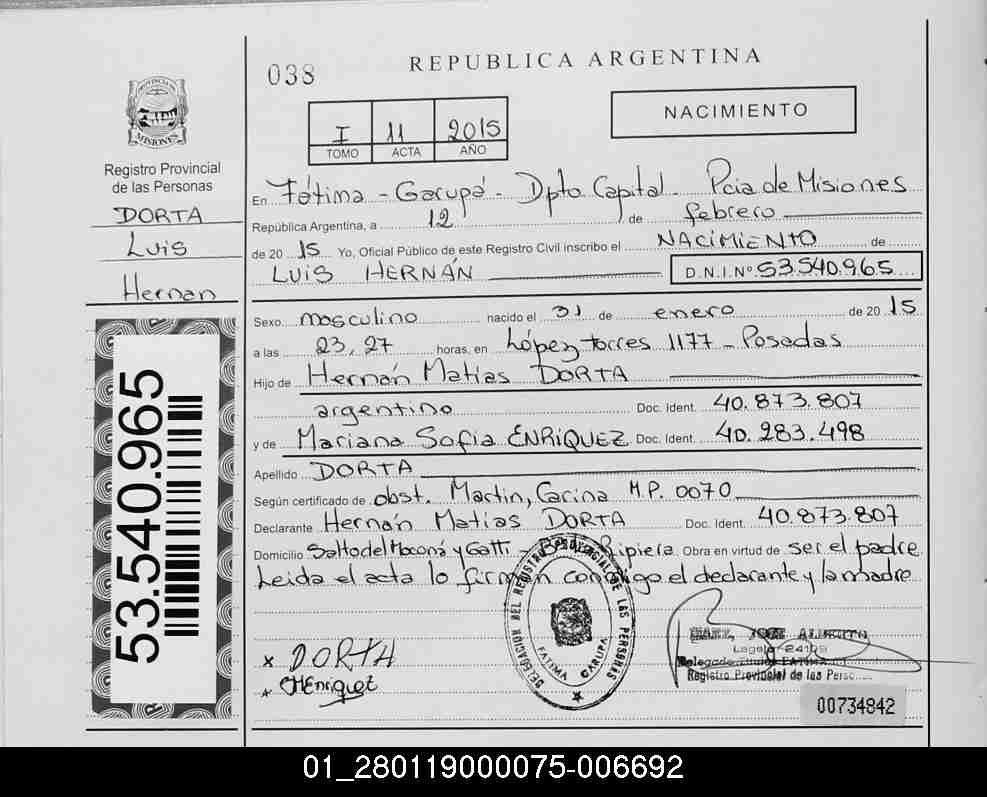 038
REPUBLICA ARGENTINA
PROVINCIA DE
MISIONES
Registro Provincial
de las Personas
DORTA
Luis
Hernan
53.540.965
I 11 2015
TOMO ACTA AÑO
NACIMIENTO
En Fátima - Garupá - Dpto Capital - Pcia de Misiones
República Argentina, a 12 de febrero
de 2015 Yo, Oficial Público de este Registro Civil inscribo el NACIMIENTO de
LUIS HERNÁN D.N.I.Nº 53.540.965
Sexo masculino nacido el 31 de enero de 2015
a las 23,27 horas, en López torres 1177 - Posadas
Hijo de Hernán Matias DORTA
argentino Doc. Ident. 40.873.807
y de Mariana Sofia ENRIQUEZ Doc. Ident. 40.283.498
Apellido DORTA
Según certificado de obst. Martin, Carina M.P. 0070
Declarante Hernán Matias DORTA Doc. Ident. 40.873.807
Domicilio Salto del Moconá y Gatti - Ripiera Obra en virtud de ser el padre
Leida el acta lo firman conmigo el declarante y la madre
x DORTA
x Enriquez
DELEGACION DEL REGISTRO PROVINCIAL DE LAS PERSONAS
FATIMA GARUPA
JOSE ALBERTO
Legajo 24109
Delegado Titular FATIMA
Registro Provincial de las Perso
00734842
01_280119000075-006692